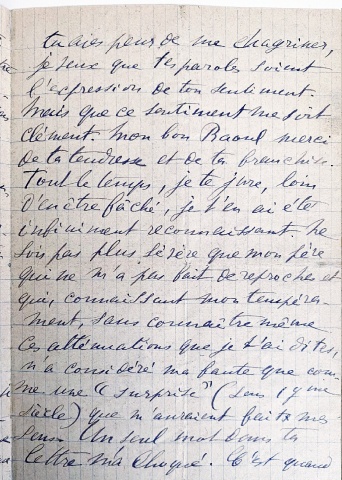 tu aies peur de me chagriner,
je veux que tes paroles soient
l'expression de ton sentiment.
Mais que ce sentiment me soit
clément. Mon bon Raoul merci
de ta tendresse et de ta franchise.
Tout le temps, je te jure, loin
d'en être fâché, je t'en ai été
infiniment reconnaissant. Ne
sois pas plus sévère que mon père
qui ne m'a pas fait de reproches et
qui, connaissant mon tempéra-
ment, sans connaître même
ces atténuations que je t'ai dites,
n'a considéré ma faute que com-
me une "surprise" (
siècle) que m'auraient faite mes
sens. Un seul mot dans ta
lettre m'a choqué. C'est quand